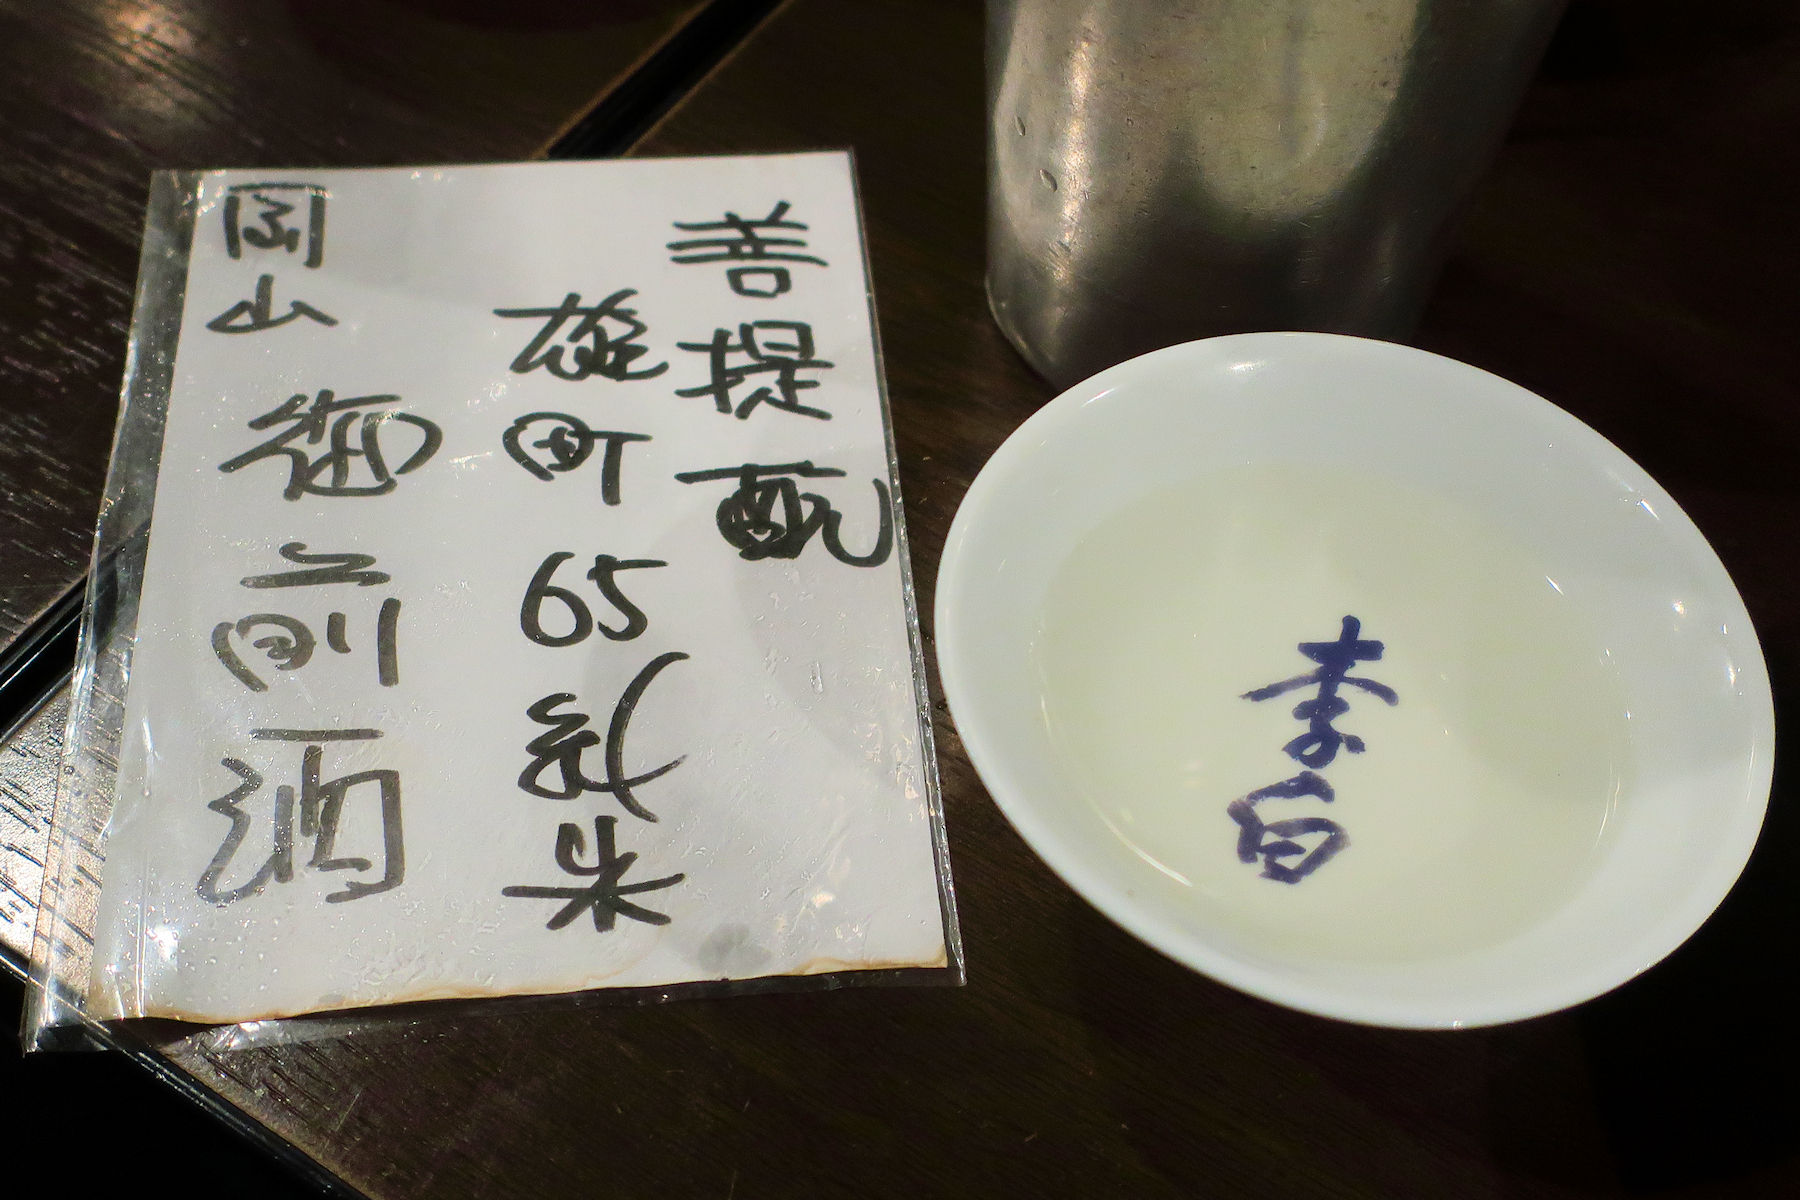 善提酛
雄町 65
岡山 御前酒
李白